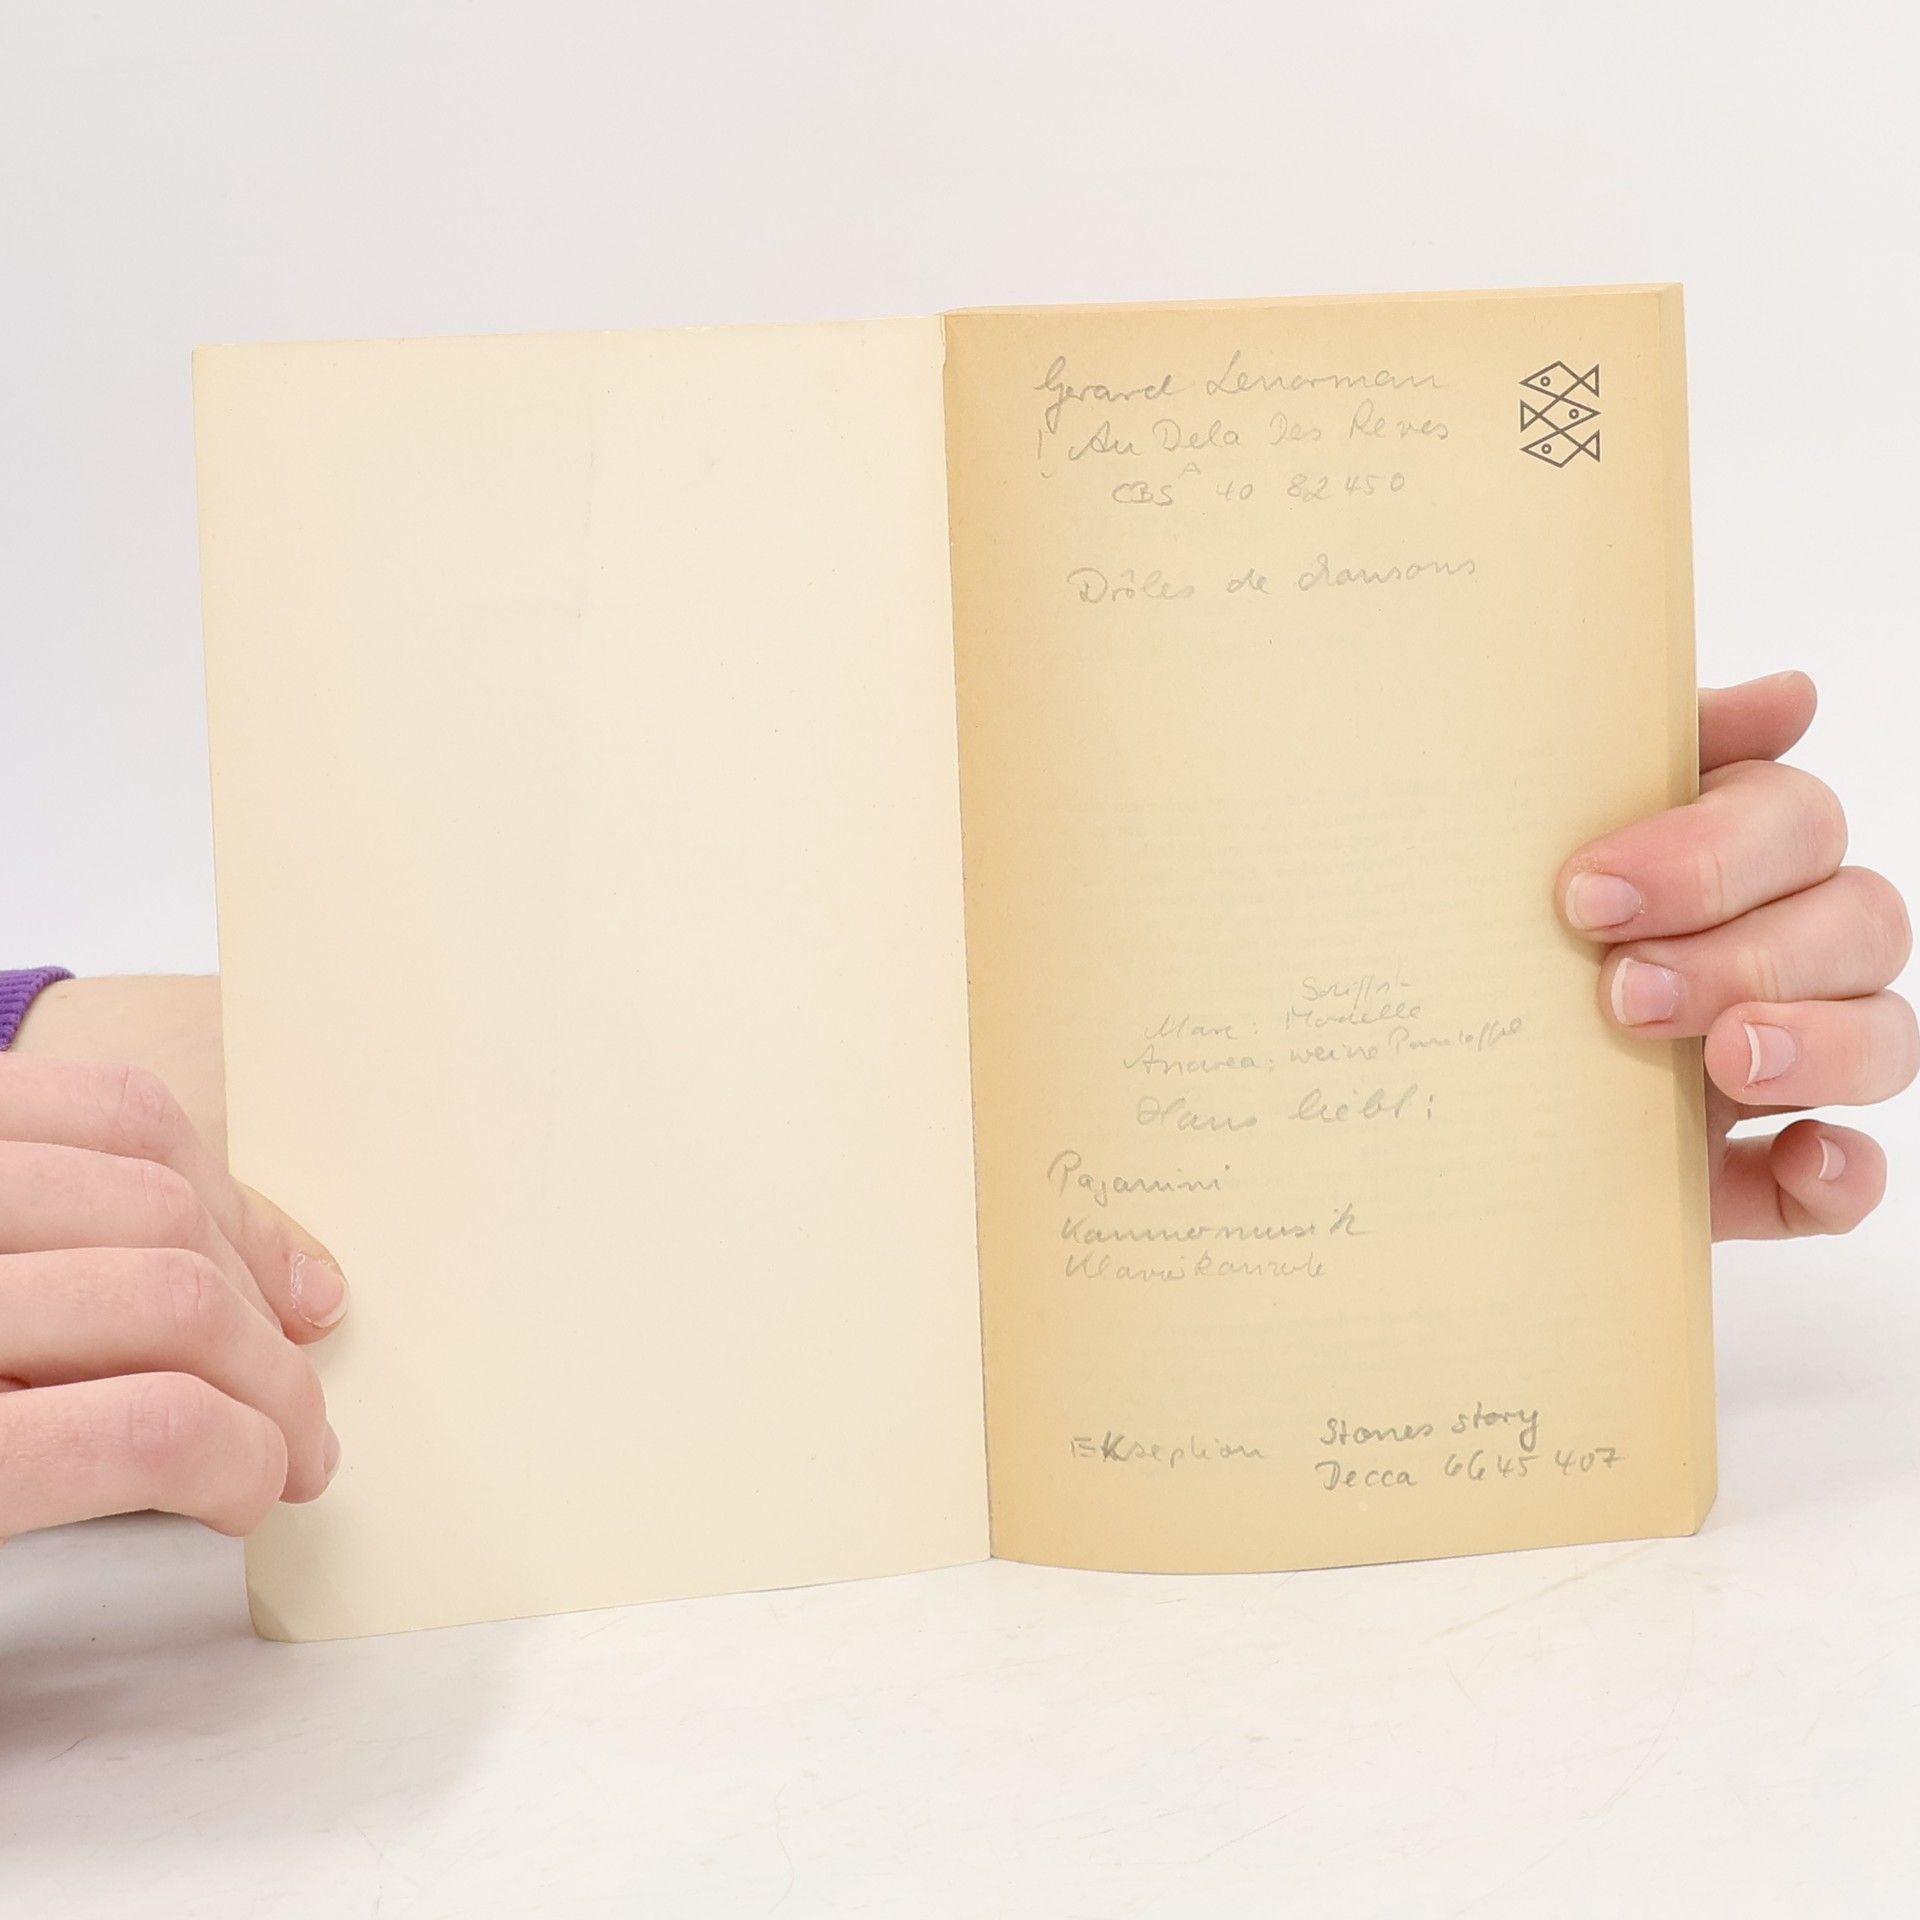 Gerard Lenorman
! Au Dela Des Reves
CBS A 40 82 450
Drôles de chansons
Schiffs-
Marc: Modelle
Andrea: weine Pantoffel
Hans liebt:
Paganini
Kammermusik
Ekseption Stones story
Decca 6645 407